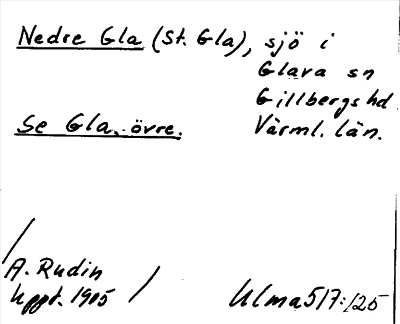 Nedre Gla (St. Gla), sjö i
Glava sn
Gillbergs hd.
Se Gla, övre.
Värml. län.
A. Rudin
Uppt. 1905
Ulma 517:125